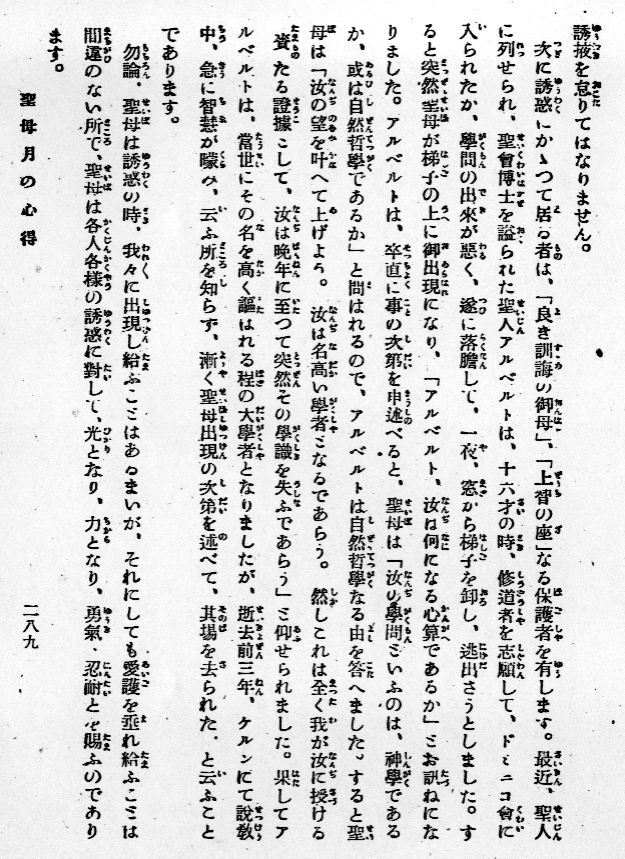 誘掖を怠りてはなりません。
次に誘惑にかゝつて居る者は、「良き訓誨の御母」、「上智の座」なる保護者を有します。最近、聖人
に列せられ、聖會博士を諡られた聖人アルベルトは、十六才の時、修道者を志願して、ドミニコ會に
入られたか、學問の出來が悪く、遂に落膽して、一夜、窓から梯子を卸し、逃出さうとしました。す
ると突然聖母が梯子の上に御出現になり、「アルベルト、汝は何になる心算であるか」とお訊ねにな
りました。アルベルトは、卒直に事の次第を申述べると、聖母は「汝の學問といふのは、神學である
か、或は自然哲學であるか」と問はれるので、アルベルトは自然哲學なる由を答へました。すると聖
母は「汝の望を叶へて上げよう。汝は名高い學者となるであらう。然しこれは全く我が汝に授ける
資たる證據として、汝は晩年に至つて突然その學識を失ふであらう」と仰せられました。果してア
ルベルトは、當世にその名を高く謳はれる程の大學者となりましたが、逝去前三年、ケルンにて說敎
中、急に智慧が曚み、云ふ所を知らず、漸く聖母出現の次第を述べて、其場を去られた、と云ふこと
であります。
勿論、聖母は誘惑の時、我々に出現し給ふことはあるまいが、それにしても愛護を垂れ給ふことは
間違のない所で、聖母は各人各樣の誘惑に對して、光となり、力となり、勇氣、忍耐とを賜ふのであり
ます。
聖母月の心得
二八九